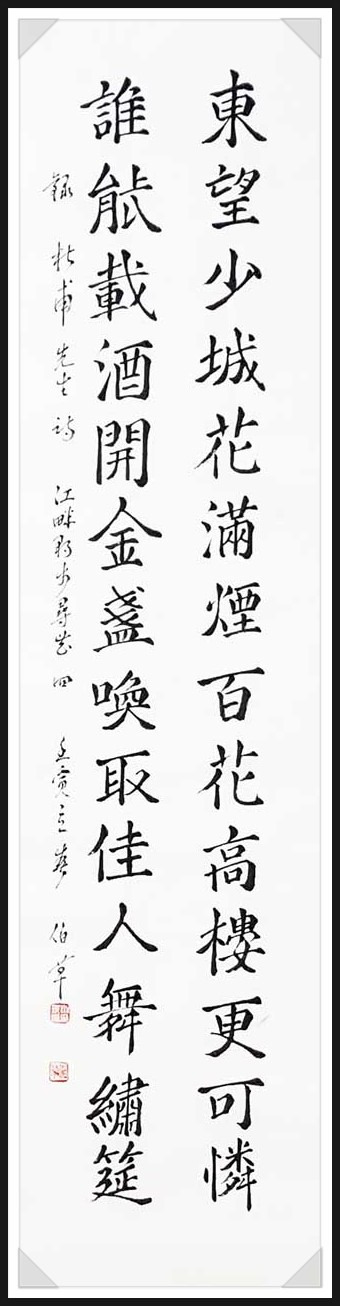 東望少城花滿煙百花高樓更可憐
誰能載酒開金盞喚取佳人舞繡筵
錄 杜甫先生詩 江畔獨步尋花 四 壬寅立春 伯草